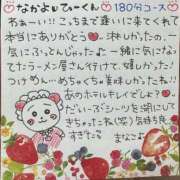 なかよしひーくん 180分コース
わぁーい!!こっちまで逢いに来てくれて
本当にありがとう
気にふってんじゃったよ〜一緒に気にな
ってたラーメン屋さん行けて、嬉しかった!
つけめん めちゃくちゃ美味しかったね!!
あのホテルキレイでしょ?
だいぶシーツを濡にして
きちゃったね(笑)気持ち良
すぎた
まなここ